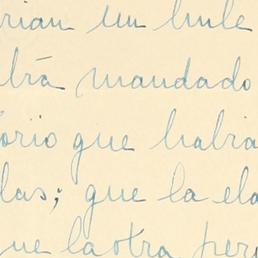 rian un hule
brá mandado
orio que habia
las; que la ela
que la otra pers